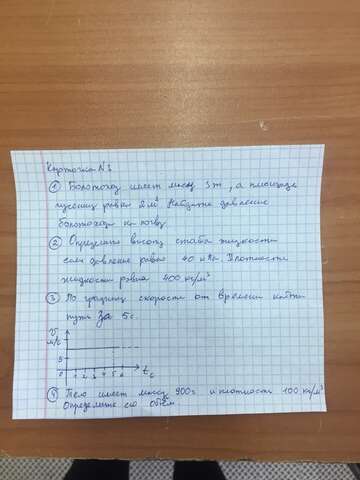 Карточка N3
① Болотоход имеет массу 3т, а площадь
гусениц равна 2 м² Найдите давление
болотохода на почву.
② Определите высоту столба жидкости
если давление равно 40 кПа. Плотность
жидкости равна 400 кг/м³
③ По графику скорости от времени найти
путь за 5с.
V
м/с
5
0 1 2 3 4 5 6 t, с
④ Тело имеет массу 900г и плотность 100 кг/м³
Определите его объём.